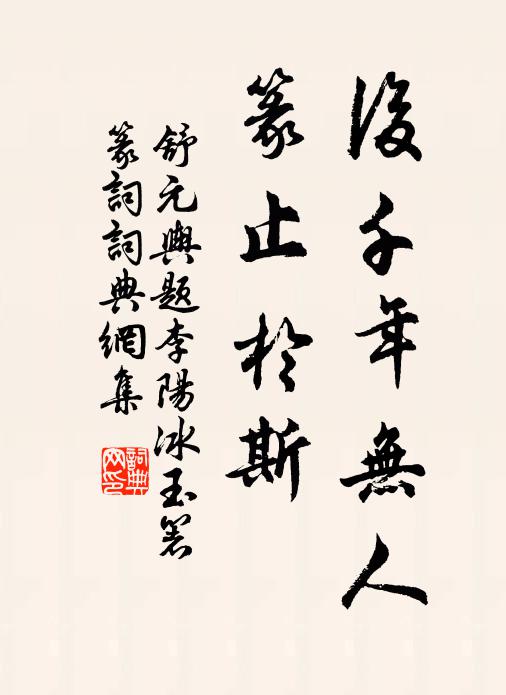 後千年無人
篆止於斯
舒元輿題李陽冰玉箸
篆詞詞典網集
詞典網印